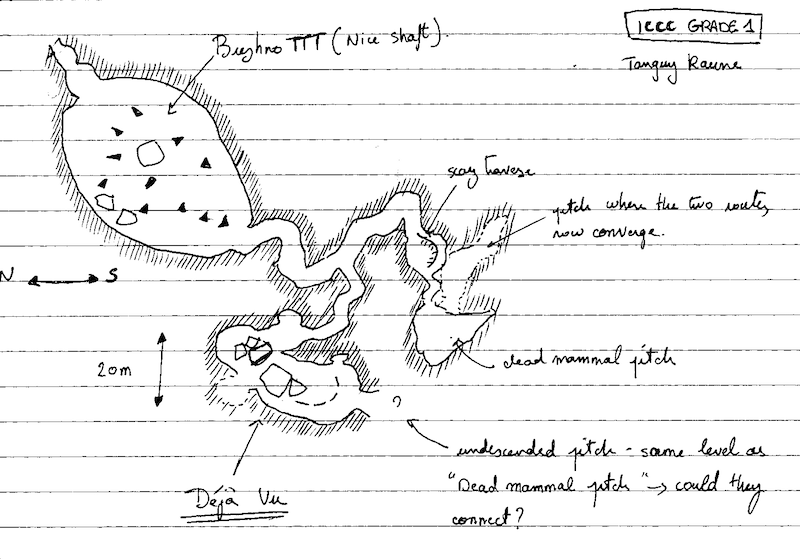 ICCC GRADE 1
Tanguy Racine
Bushno III (Nice shaft).
scary traverse
pitch where the two routes
now converge.
N S
20m
dead mammal pitch
?
undescended pitch - same level as
"Dead mammal pitch" → could they
connect?
Déjà Vu